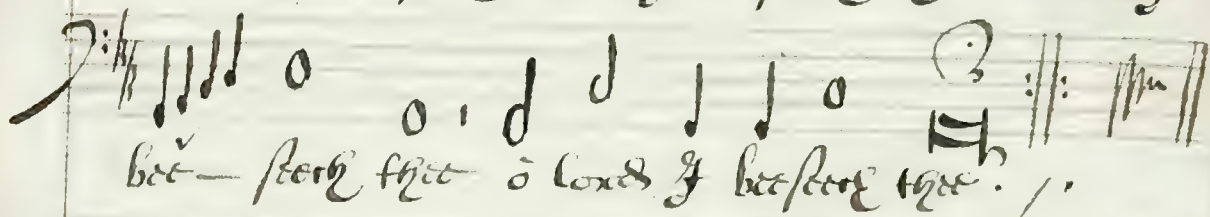 bee— seech thee ô lord I beeseech thee. /.